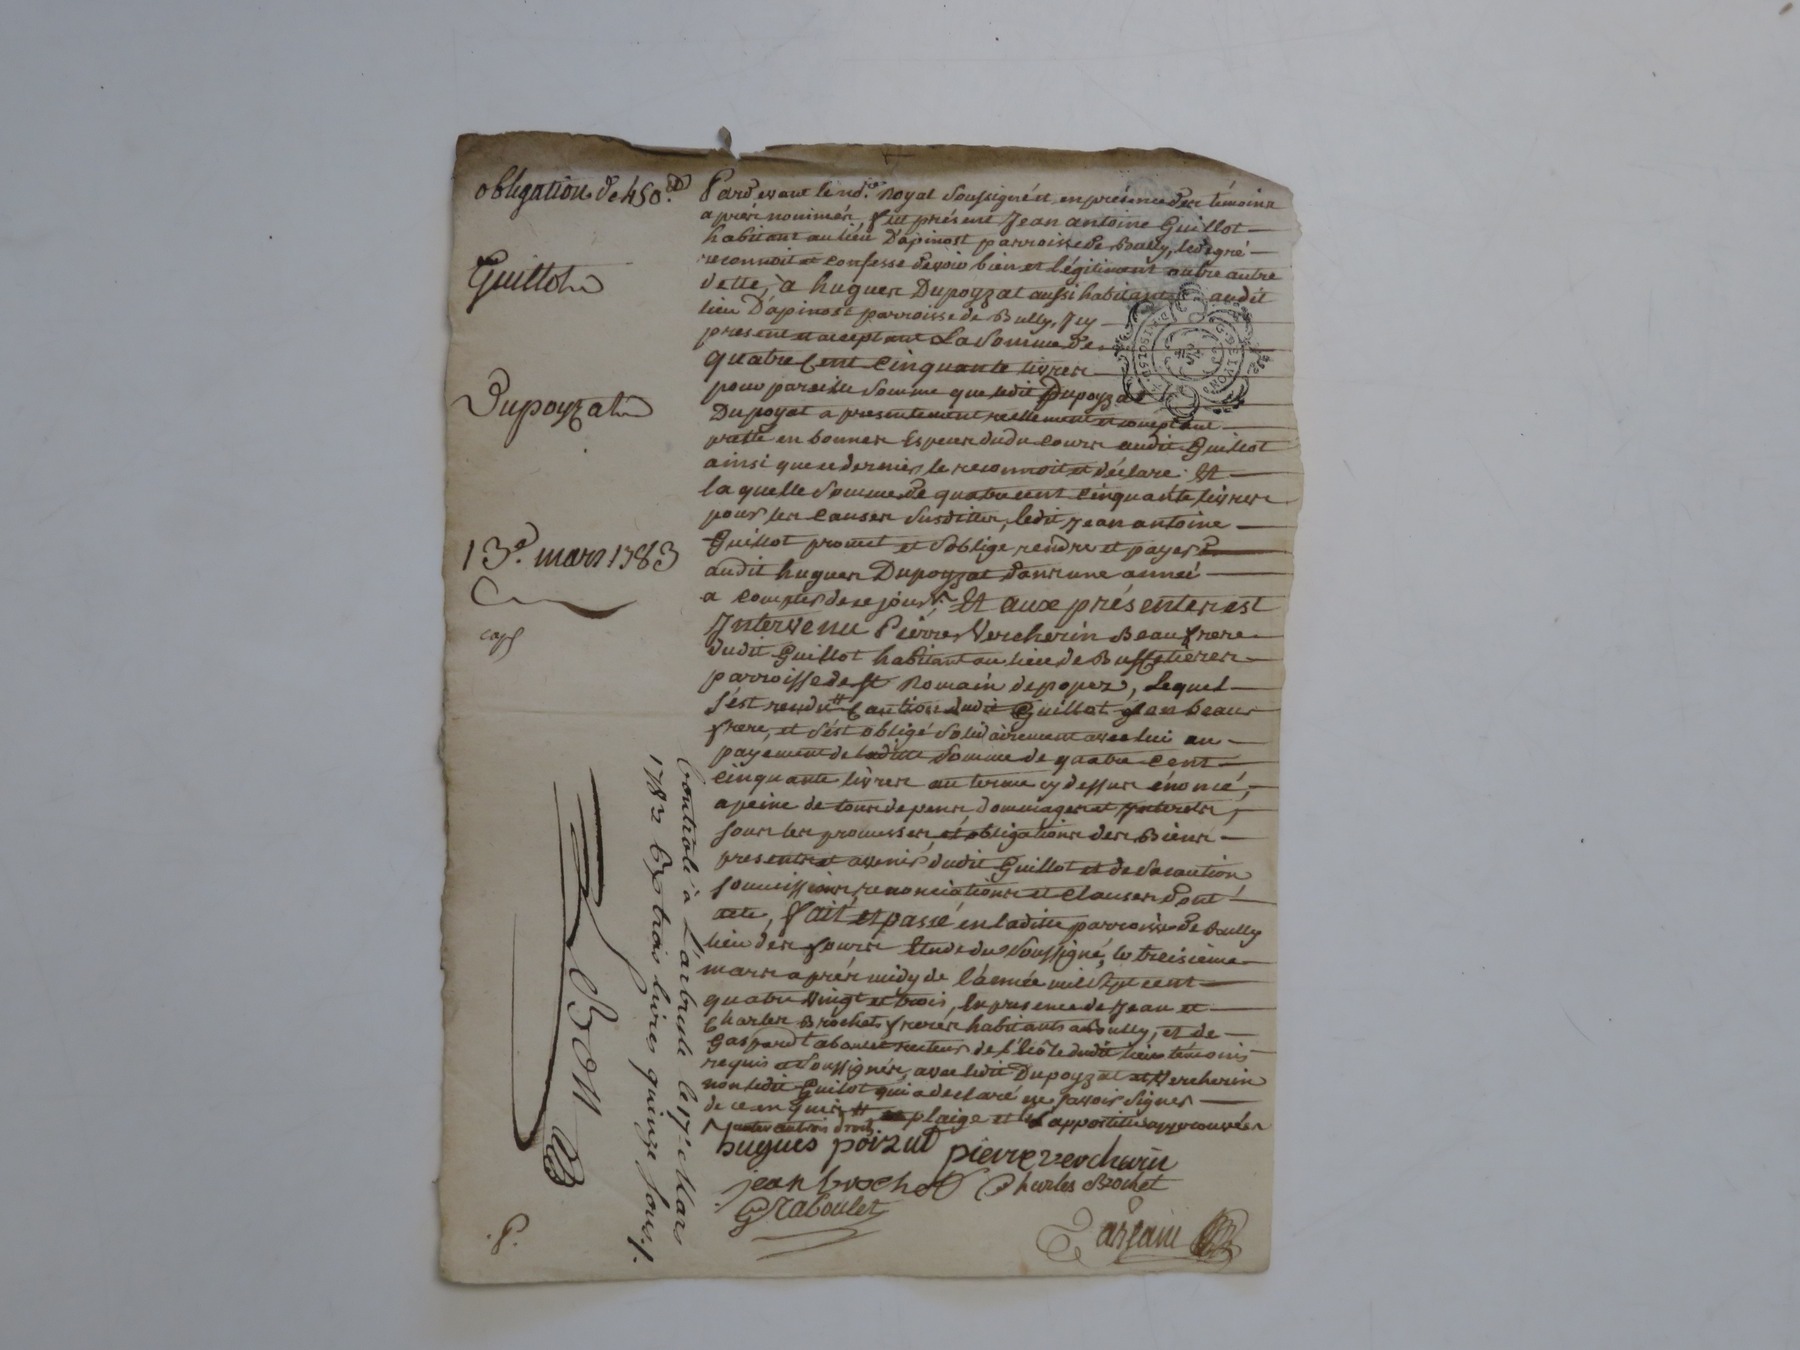 obligation de 450.₶
Guillot
Dupoyzat
13.e mars 1783
Pardevant le no.re Royal soussigné et en présence des témoins
après nommés, fut présent Jean antoine Guillot
habitant au lieu D'apinost parroisse de Bully, lequel de gré
reconnoit et confesse devoir bien et légitimement outre autre
dette, à hugues Dupoyzat aussi habitant audit
lieu D'apinost parroisse de Bully, Icy
present et acceptant La Somme de
quatre Cent Cinquante livres
pour pareille somme que ledit Dupoyzat
Dupoyat a presentement reellement et comptant
presté en bonnes Especes dudu cours audit Guillot
ainsi que ce dernier le reconnoit et déclare. Et
la quelle somme de quatre cent cinquante livres
pour les causes susdittes, ledit Jean antoine
Guillot promet et s'oblige rendre et payer
audit hugues Dupoyzat dans une année
a compter de ce jour. Et aux présentes est
Intervenu Pierre Vercherin Beaufrere
dudit Guillot habitant au lieu de Buffetieres
parroisse de st Romain de popez, Lequel
s'est rendu Caution dudit Guillot son beau
frere, et s'est obligé solidairement avec lui au
payement de laditte somme de quatre cent
cinquante livres au terme cy dessus énoncé,
a peine de tous depens, dommages et Interets,
sous les promesses, et obligations des Biens
presents et avenir dudit Guillot et de sa caution
soumissions, renonciations et clauses dont
acte, fait et passé en laditte parroisse de Bully
lieu des fours Etude du soussigné, le treisieme
mars après midy de l'année mil sept cent
quatre vingt et trois, En presence de Jean et
Charles Brochet freres habitants a Bully, et de
Gaspard Raboulet recteur de l'école dudit lieu témoins
requis et soussignés, avec ledit Dupoyzat et Vercherin
non ledit Guillot qui a declaré ne savoir signer
de ce enquis # plaige et les appostilles approuvées
hugues poizat pierre vercherin
jean brochet Charles Brochet
G Raboulet
Controlé à L'arbresle le 17.e Mars
1783 Rx trois livres quinze sous